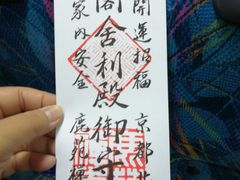 開運招福 京都北
閣舎利殿御守
家内安全 鹿苑禅